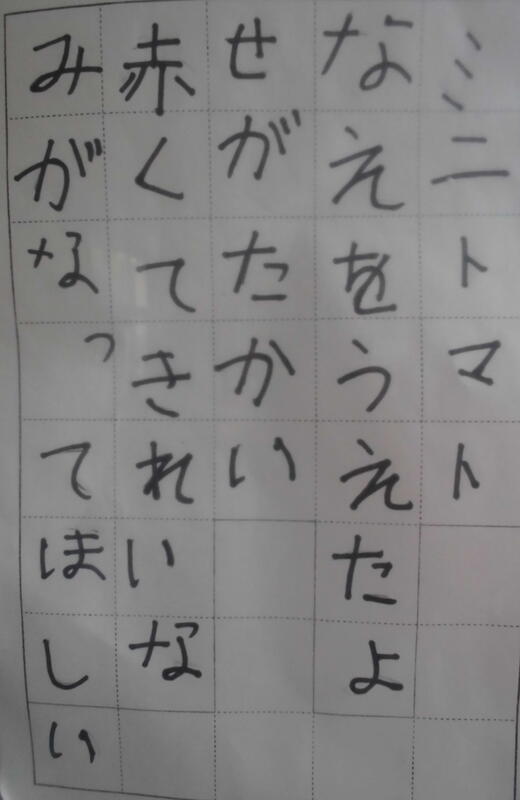 ミニトマト
なえをうえたよ
せがたかい
赤くてきれいな
みがなってほしい